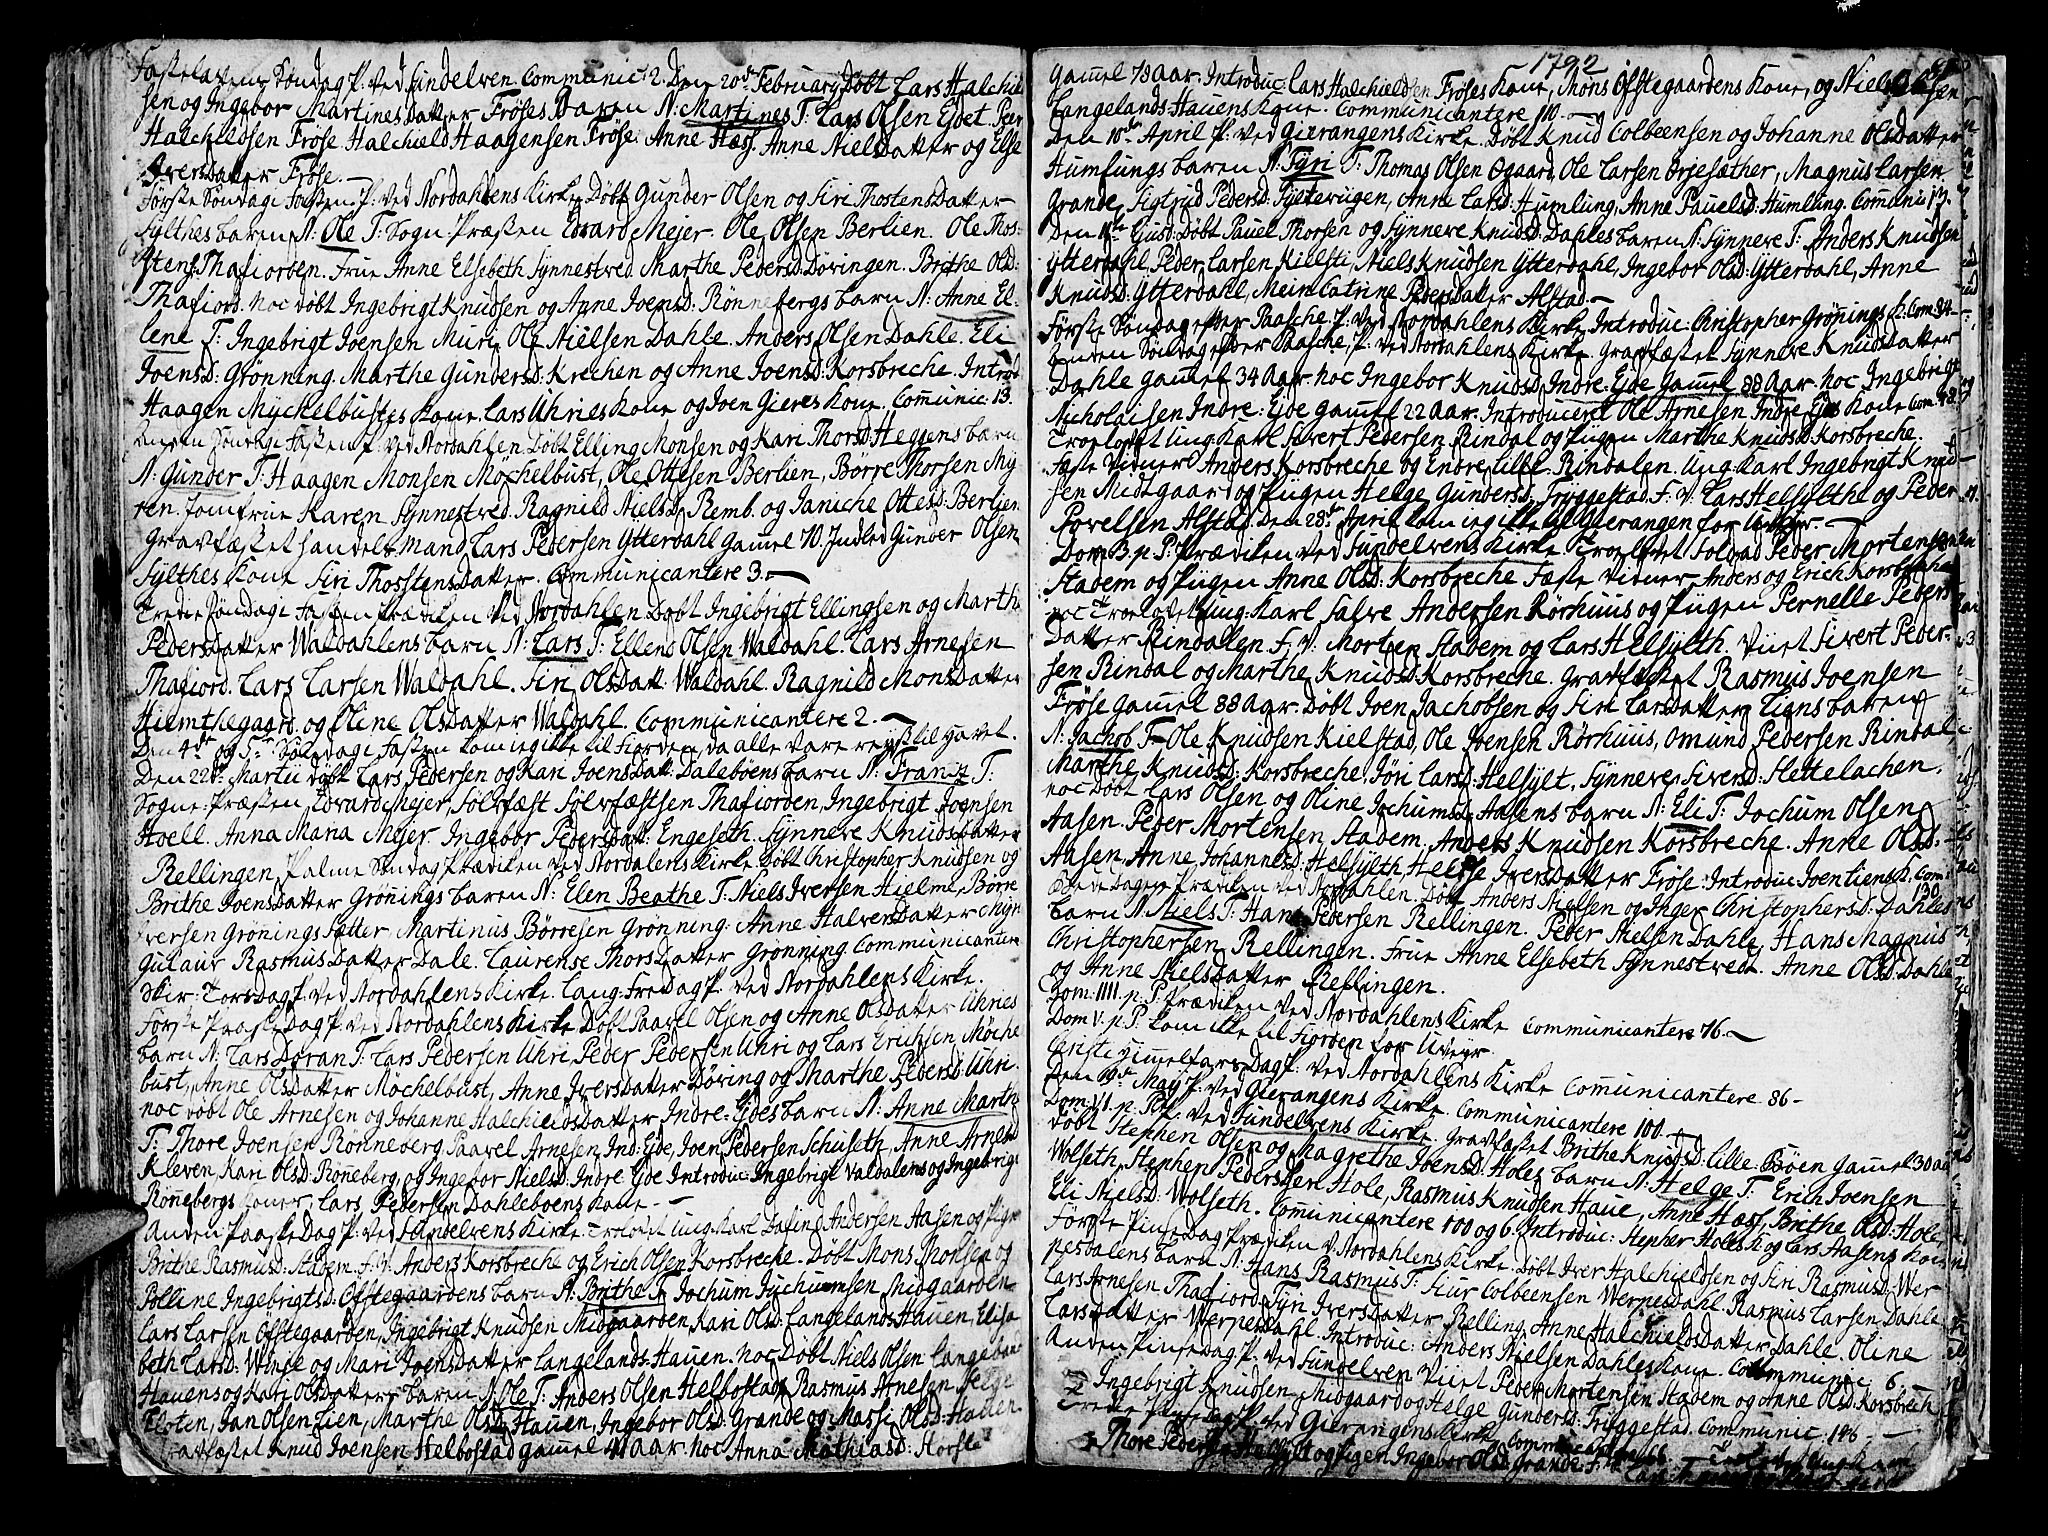 Fastelavens Söndag P. ved Sundelven Communic: 2. Den 20de February Döbt Lars Halchield
sen og Ingebor Martines Datter Fröses Baren N: Martines T: Lars Olsen Ejdet. Peer
Halchieldsen Fröse Halchield Haagensen Fröse. Anne Hæss. Anne Nielsdatter og Else
Iversdatter Fröse. —
Förste Söndag i Fasten P. ved Nordahlens Kirke Döbt Gunder Olsen og Siri Thostensdatter
Sylthes baren N: Ole T: Sogn-Præsten Edvard Mejer. Ole Olsen Berlien. Ole Thos-
stens. Thafiorden. Frue Anne Elsebeth Synnestved Marthe Pedersd: Döringen. Brithe Olsd:
Thafiord. noc döbt Ingebrigt Knudsen og Anne Joensd: Rönnebergs barn N: Anne El-
lene T: Ingebrigt Joensen Muri Ole Nielsen Dahle. Anders Olsen Dahle. Eli
Joensd: Grönning. Marthe Gundersd: Krechen og Anne Joensd: Korsbreche. Introd:
Haagen Myckelbustes Kone Lars Uhries Kone og Joen Gieres Kone. Comunic: 13.
Anden Söndag i Fasten P. ved Nordahlen Döbt Elling Monsen og Kari Thorsd: Heggens barn
N: Gunder T: Haagen Monsen Mochelbust, Ole Ottesen Berlien, Börre Thorsen My-
ren. Jomfrue Karen Synnestved. Ragnild Nielsd: Remb. og Janiche Ottesd: Berlien
Gravfæstet handels mand Lars Pedersen Ytterdahl gamel 70. Indled Gunder Olsen
Sylthes Kone Siri Thostensdatter. Communicantere 3. —
Tredie Söndag i Fasten Prædiken ved Nordahlen Döbt Ingebrigt Ellingsen og Marthe
Pedersdatter Waldahlens barn N: Lars T: Ellend Olsen Waldahl. Lars Arnesen
Thafiord. Lars Larsen Waldahl. Siri Olsdatt: Waldahl. Ragnild Monsdatter
Hiemtsegaard og Oline Olsdatter Waldahl. Communicantere 2. —
Den 4de og 5te Söndag i Fasten kom ieg ikke til Fiorden da alle Vare reyst til havet.
Den 22de Martii döbt Lars Pedersen og Kari Joensdatt: Daleböens barn N: Frantz T:
Sogne-Præsten Edvard Mejer, Sölvfæst Sölvfæstsen Thafiorden, Ingebrigt Joensen
Hoell. Anna Maria Mejer Ingebor Pedersdatt: Engeseth. Synnere Knudsdatter
Rellingen. Palme Söndag Prædiken ved Nordalens Kirke Döbt Christopher Knudsen og
Brithe Joensdatter Grönings baren N: Elen Beathe T: Niels Iversen Hielme, Börre
Iversen Grönings Sætter Martinus Börresen Grönning. Anne Halversdatter Myn
Gulaur Rasmusdatter Dale. Laurense Thorsdatter Grönning. Communicantere
Skier-Torsdag P. ved Nordahlens Kirke. Lang-Fredag P. ved Nordahlens Kirke.
Förste Paaske Dag P. ved Nordahlens Kirke Döbt Paavel Olsen og Anne Olsdatter Uhries
barn N: Lars Doran T: Lars Pedersen Uhri, Peder Pedersen Uhri og Lars Erichsen Möche
bust, Anne Olsdatter Möchelbust, Anne Iversdatter Döring og Marthe Pedersd: Uhri.
noc döbt Ole Arnesen og Johanne Halchieldsdatter Indre-Ejdes barn N: Anne Martha
T: Thore Joensen Rönneberg, Paavel Arnesen Ind: Ejde, Joen Pedersen Schuseth, Anne Arnesd:
Kleven, Kari Olsd: Röneberg og Ingebor Nielsd: Indre Ejde Introduc: Ingebrigt Valdalens og Ingebrigt
Rönebergs Koner, Lars Pedersen Dahleboens Kone —
Anden Paaske Dag P. ved Sundelvens Kirke Trolovet ung: Karl Dasing Andersen Aasen og Pige
Brithe Rasmusd: Stadem F. V. Anders Korsbreche og Erich Olsen Korsbreche. Döbt Mons Monsen og
Polline Ingebrigtsd: Ofstegaardens barn N: Brithe T: Jochum Juchumsen Midgaarden
Lars Larsen Ofstegaarden, Ingebrigt Knudsen Midgaarden, Kari Olsd: Langelands Hauen, Elisa-
beth Larsd: Winje og Mari Joensdatter Langelands-Hauen. noc Döbt Niels Olsen Langeland
Hauens og Kari Olsdatters baren N: Ole T: Anders Olsen Helbostad, Rasmus Arnesen Helge
Tloten, Jan Olsen Lien, Marthe Olsd: Hauen, Ingebor Olsd: Grande og Massi Olsd: Hauen.
Gravfæstet Knud Joensen Helbostad gamel 41 Aar. noc Anna Mathiasd: Horsle
1792
Gamel 78 Aar. Introduc: Lars Halchieldsen Fröses Kone, Mons Ofstegaardens Kone, og Niels Olsen
Langelands Hauens Kone. Communicantere 110. —
Den 10de April P. ved Gierangens Kirke. Döbt Knud Colbeensen og Johanne Olsdatter
Humlungs baren N: Syri T: Thomas Olsen Ogaard, Ole Larsen Orjesæther, Magnus Larsen
Grande, Sigtrud Pedersd: Sylterügen, Anne Larsd: Humlung, Anne Pauelsd: Humling. Comunic: 13.
Den 11te Ejusd: Döbt Pauel Thorsen og Synnere Knudsd: Dahles baren N: Synnere T: Anders Knudsen
Ytterdahl, Peder Larsen Kielsti, Niels Knudsen Ytterdahl, Ingebor Olsd: Ytterdahl, Anne
Knudsd: Ytterdahl, Mein Catrine Pedersdatter Alstad. —
Förste Söndag efter Paasche P. ved Nordahlens Kirke Introduc: Christopher Grönings K. Com: 84 —
Anden Söndag efter Paasche, P. ved Nordahlens Kirke. Gravfæstet Synnere Knudsdatter
Dahle gamel 34 Aar. noc Ingebor Knudsd: Indre-Ejde Gamel 88 Aar. noc Ingebrigt
Nicholaisen Indre-Ejde gamel 22 Aar. Introduceret Ole Arnesen Indre Ejdes Kone Com: 98.
Troelovet ung: Karl Sivert Pedersen Rindal og Pigen Marthe Knudsd: Korsbreche.
Faste Vidner Anders Korsbreche og Endre Lille-Rindalen. Ung: Karl Ingebrigt Knud-
sen Midtgaard og Pigen Helge Gundersd: Tryggestad. F. V. Lars Helsylthe og Peder
Povelsen Alstad. Den 28de April kom ieg ikke til Gierangen for Uveÿr. —
Dom: 3. p. P: Prædiken ved Sundelvens Kirke Troelovet Soldad Peder Mortensen
Stadem og Pigen Anne Olsd: Korsbreche Faste Vidner Anders og Erich Korsbreche
noc Troelovet ung: Karl Salve Andersen Rörhuus og Pigen Pernelle Peders-
Datter Rindalen F. V. Morten Stadem og Lars Helsylth. Viiet Sivert Peder-
sen Rindal og Marthe Knudsd: Korsbreche. Gravfæstet Rasmus Joensen
Fröse gamel 88 Aar. Döbt Joen Jachobsen og Siri Larsdatter Liens baren
N: Jachob T: Ole Knudsen Kielstad, Ole Joensen Rörhuus, Omund Pedersen Rindal,
Marthe Knudsd: Korsbreche, Jöri Larsd: Helsylt, Synnere Siversd: Slettelachen.
noc Döbt Lars Olsen og Oline Jochumsd: Aasens barn N: Eli T: Jochum Olsen
Aasen. Peder Mortensen Stadem. Anders Knudsen Korsbreche. Anne Olsd:
Aasen, Anne Johannesd: Helsylth, Helge Iversdatter Fröse. Introduc: Joen Liens K. Com: 130
Bede Dagen Prædiken ved Nordahlen. Döbt Anders Nielsen og Inger Christophersd: Dahles
barn N: Niels T: Hans Pedersen Rellingen. Peder Nielsen Dahle, Hans Magnus
Christophersen Rellingen. Frue Anne Elsebeth Synnestved. Anne Olsd: Dahle
og Anne Nielsdatter Rellingen.
Dom: IIII. p. P. Prædiken ved Nordahlens Kirke Communicantere 76 —
Dom V. p. P. kom ikke til Fiorden for Uveÿr.
Christi Himmelfars Dag P. ved Nordahlens Kirke Communicantere 86 —
Den 19de May P. ved Gierangens Kirke. Communicantere 100 —
Dom VI. p. P. ved Sundelvens Kirke. Gravfæstet Brithe Knudsd: Lille-Böen gamel 30 Aar
döbt Stephen Olsen og Magrethe Joensd: Holes barn N: Helge T: Erich Joensen
Wolseth, Stephen Pedersen Hole, Rasmus Knudsen Haue, Anne Hæss, Brithe Olsd: Hole
Eli Nielsd: Wolseth. Comunicantere 100 og 6. Introduc: Stepher Holes K. og Lars Aasens Kone
Förste Pinsdag Prædiken v. Nordahlens Kirke. Döbt Iver Halchieldsen og Siri Rasmusd: Wer
pesdalens barn N: Hans Rasmus T: Siur Colbeensen Werpesdahl. Rasmus Larsen Dahle
Lars Arnesen Thafiord, Syri Iversdatter Relling, Anne Halchieldsdatter Dahle. Oline
Larsdatter Werpesdahl. Introduc: Anders Nielsen Dahles Kone. Communic: 6 —
Anden Pinse Dag P. ved Sundelven Viiet Peder Mortensen Stadem og Anne Olsd: Korsbrech
2 Ingebrigt Knudsen Midgaard og Helge Gundersd: Tryggestad. Communic: 146 —
Tredie Pinsedag P. ved Gierangens Kirke Communicantere Troelovet Ung Karl
Thore Pedersen og Pigen Ingebor Olsd: Grande F. V.